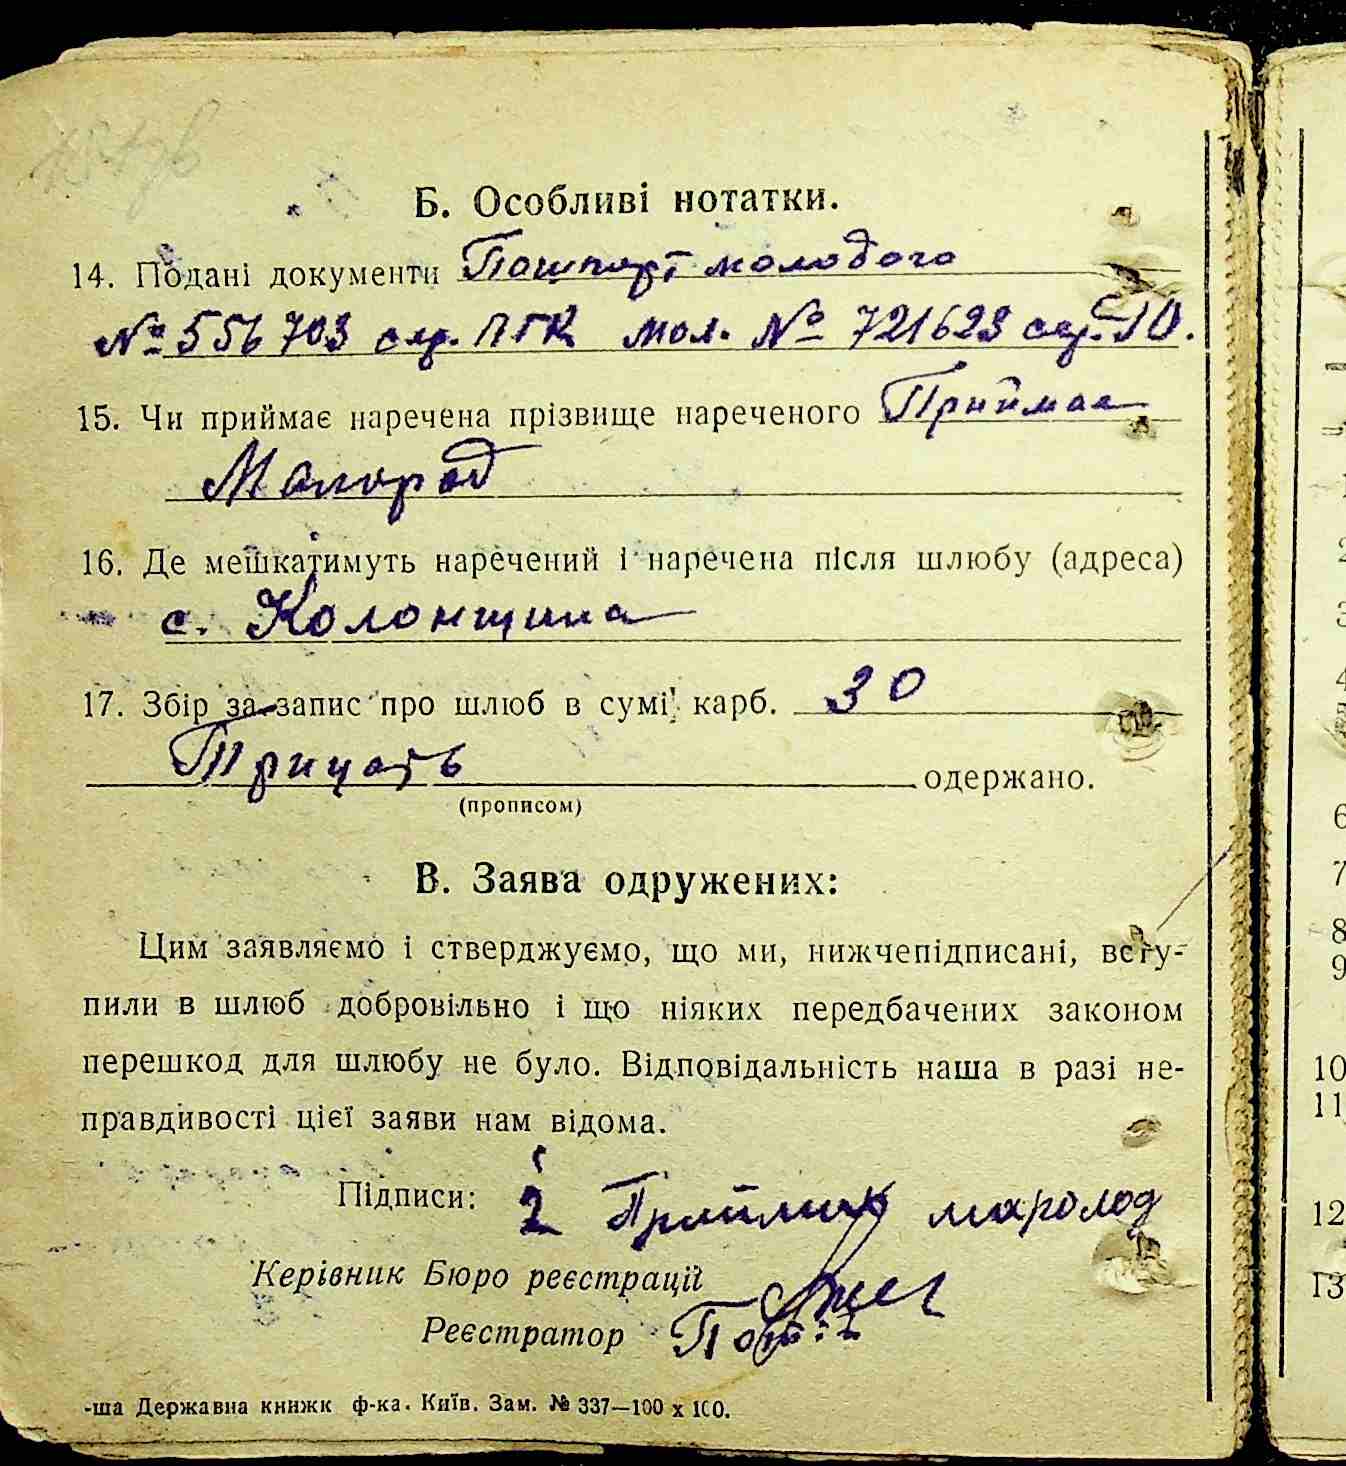 Б. Особливі нотатки.
14. Подані документи Пашпорт молодого
№ 556703 сер. ПГК мол. № 721623 сер. ЯО.
15. Чи приймає наречена прізвище нареченого Приймає
Малород
16. Де мешкатимуть наречений і наречена після шлюбу (адреса)
с. Колонщина
17. Збір за запис про шлюб в сумі карб. 30
Трицать одержано.
(прописом)
В. Заява одружених:
Цим заявляємо і стверджуємо, що ми, нижчепідписані, всту-
пили в шлюб добровільно і що ніяких передбачених законом
перешкод для шлюбу не було. Відповідальність наша в разі не-
правдивості цієї заяви нам відома.
Підписи: 2 Приймак маролод
Керівник Бюро реєстрації
Реєстратор
-ша Державна книжк ф-ка. Київ. Зам. № 337—100 х 100.
2
3
4
6
7
8
9
10
11
12
13